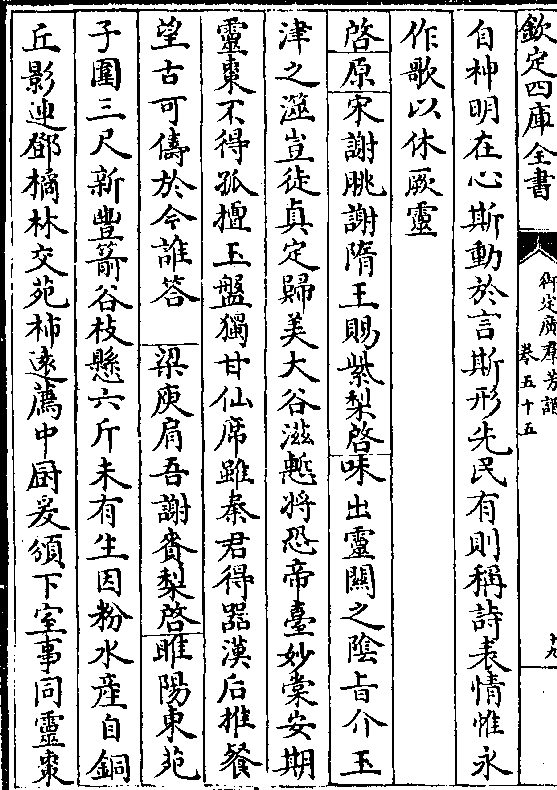 欽定四庫全書
御定廣羣芳譜
卷五十五
十九
自神明在心斯動於言斯形先民有則稱詩表情惟永
作歌以休厥靈
啓原宋謝朓謝隋王賜紫梨啓味出靈關之陰旨介玉
津之澨豈徒真定歸美大谷滋慙将恐帝臺妙棠安期
靈棗不得孤擅玉盤獨甘仙席雖秦君得器漢后推餐
望古可儔於今誰答 梁庾肩吾謝賚梨啓睢陽東苑
子圍三尺新豐箭谷枝懸六斤未有生因粉水產自銅
丘影連鄧橘林交苑柿遠薦中厨爰頒下室事同靈棗